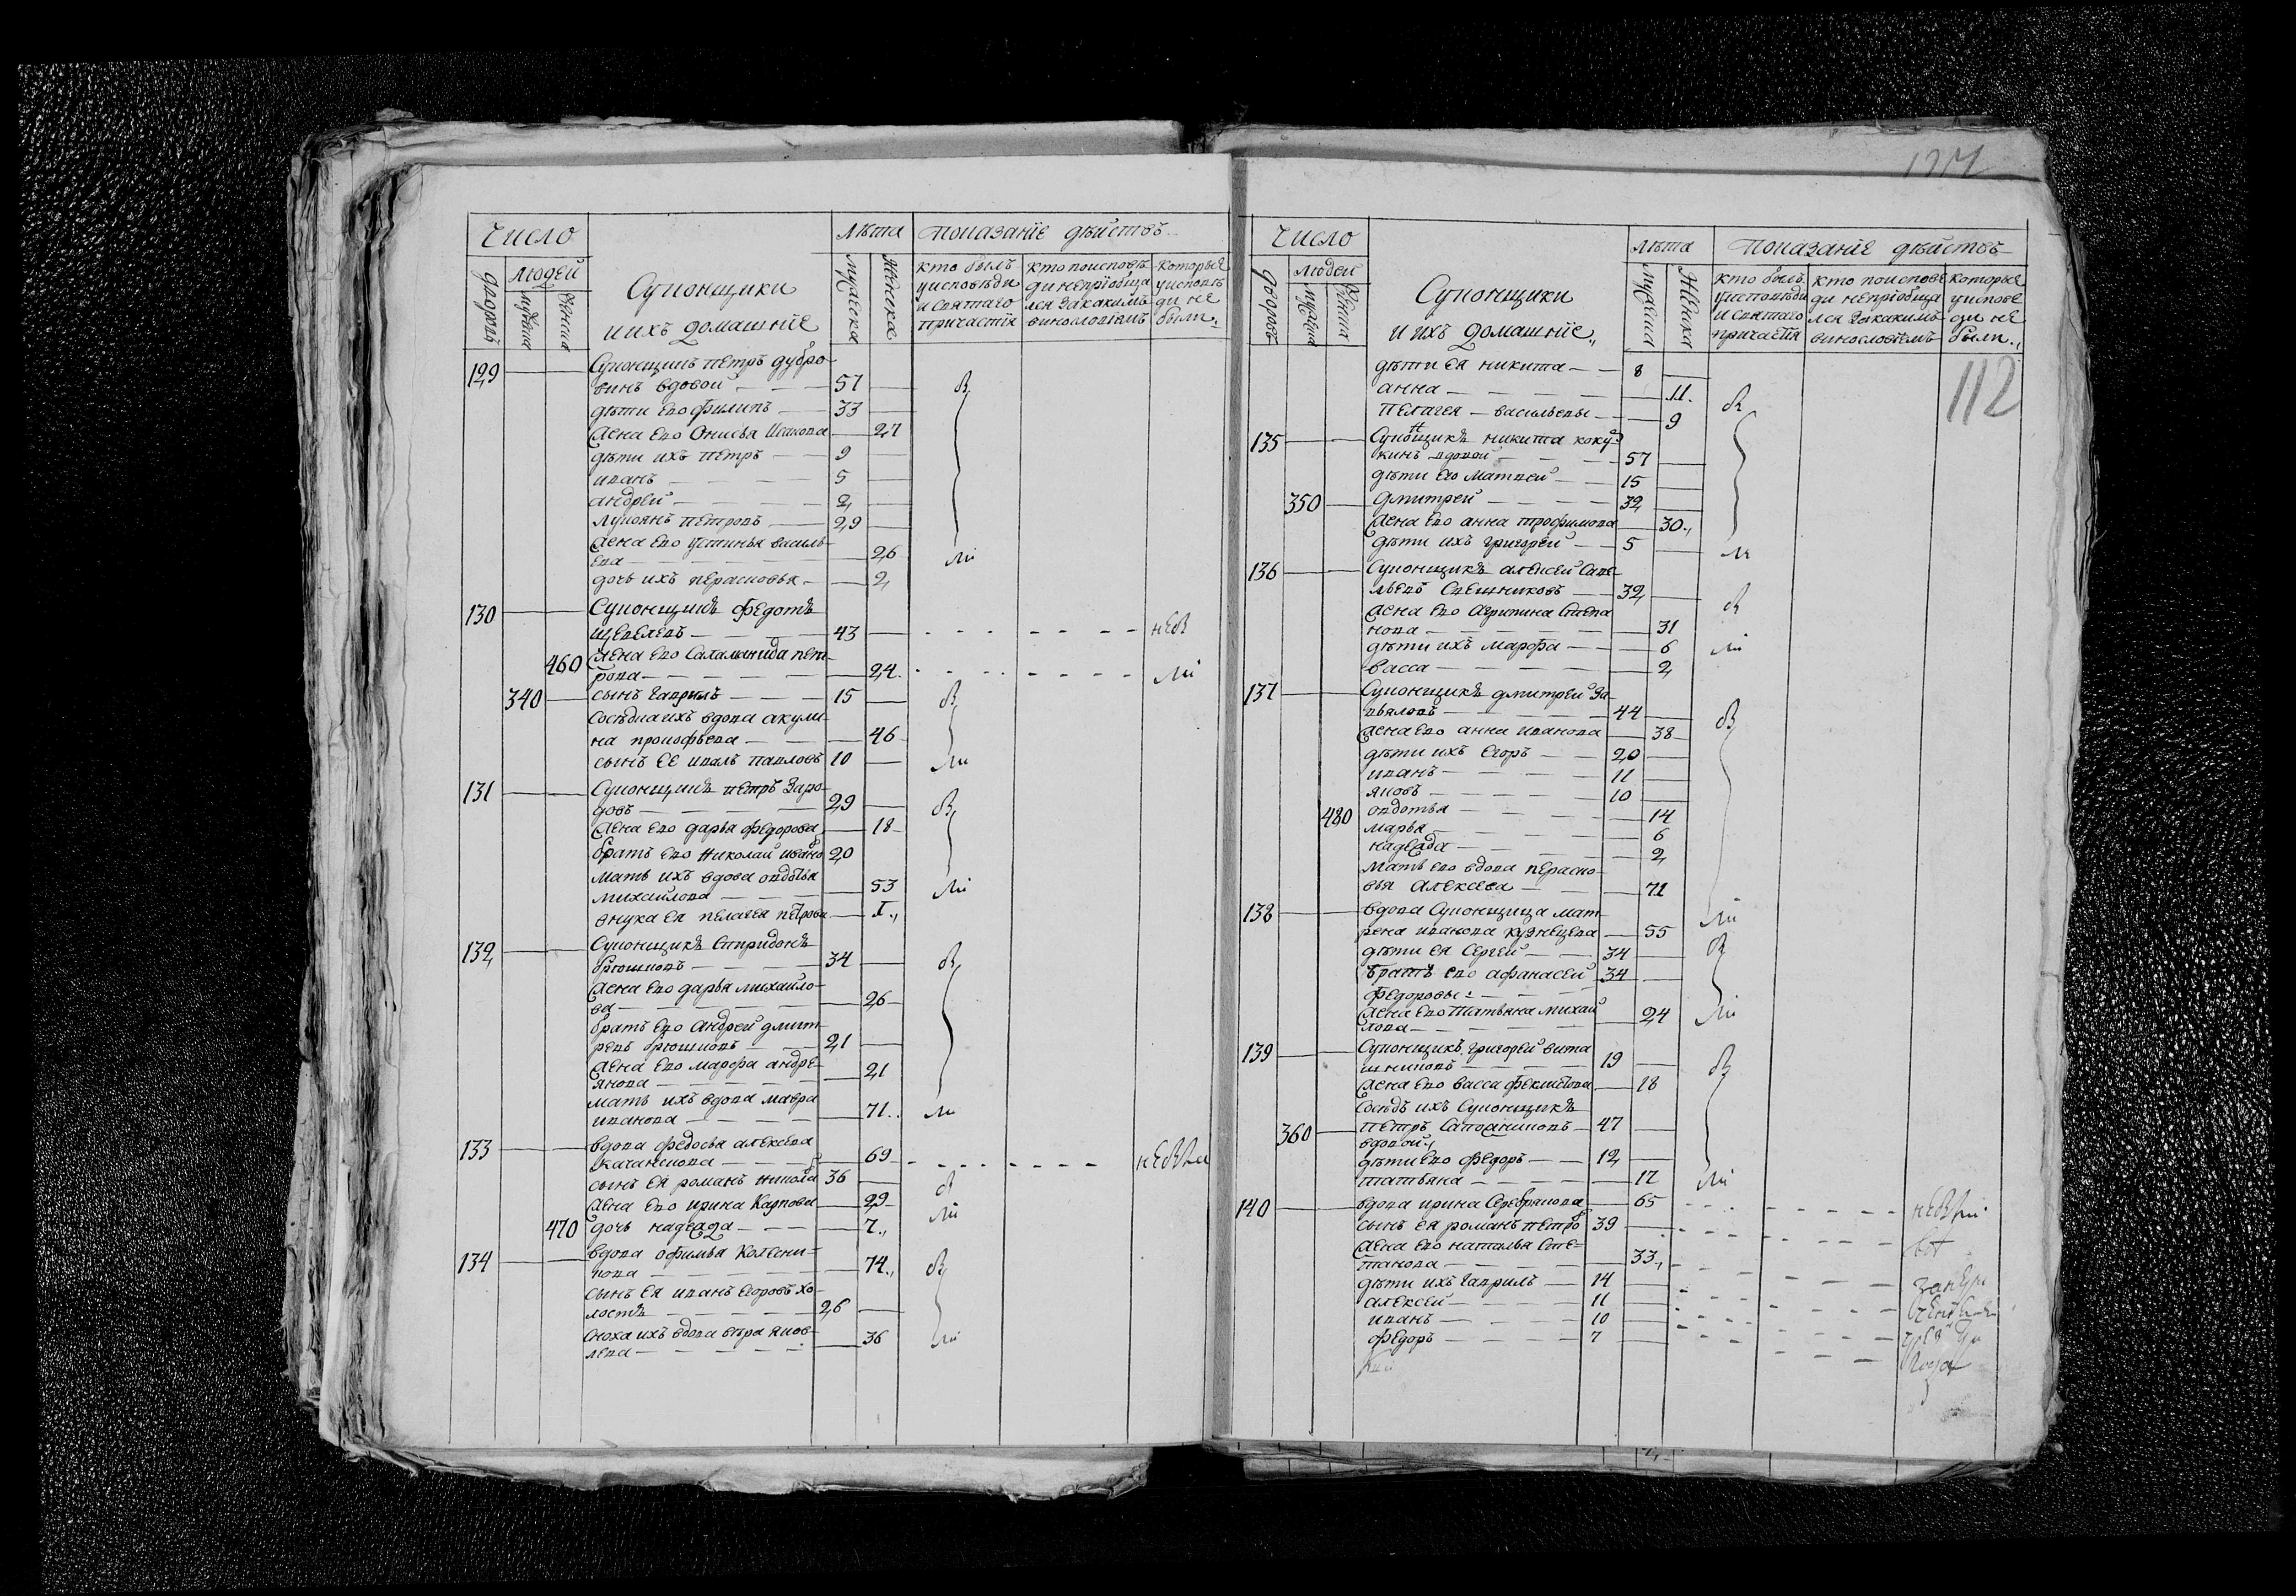 Число
Лѣта Показанїе дѣйствъ
Людей
Суконщики
и ихъ домашнїе
дворовъ
мужеска
женска
кто былъ
у исповѣди
и святаго
причастїя
кто исповѣ-
дї непрїобща
лся за какимъ
винословїемъ
которые
у исповѣ
ди не
были
129 Суконщикъ петръ дубро-
винъ вдовой 57
дѣти его филипъ 33
жена его Онисья Иванова 27
дѣти ихъ петръ 9
иванъ 5
андрей 2
лукоянъ петровъ 29
жена его устинья василь-
ева 26
дочь ихъ парасковья 2
130 Суконщикъ федотъ
43
460 жена его Саламанида пет-
рова 24
340 сынъ гаврилъ 15
Сосѣдка ихъ вдова акули-
на прокофьева 46
сынъ ее иванъ павловъ 10
131 Суконщикъ петръ
29
жена его дарья федорова 18
братъ его Николай ивано 20
мать ихъ вдова овдотья
михайлова 53
внука ея пелагея петрова 1
132 Суконщикъ спиридонъ
брюшковъ 34
жена его дарья михайло-
ва 26
братъ его Андрей дмит-
ревъ брюшковъ 21
жена его марфа андре-
янова 21
мать ихъ вдова мавра
иванова 71
133 вдова федосья алексева
69
сынъ ея романъ никола 36
жена его ирина Карпова 29
470 дочь надежда 7
134 вдова офимья Колесни-
кова 74
сынъ ея иванъ егоровъ хо-
лостъ 26
сноха ихъ вдова вѣра яков-
лева 36
127
Число
Лѣта Показанїе дѣйствъ
Людей
Суконщики
и ихъ домашнїе
дворовъ
мужеска
женска
кто былъ
у исповѣди
и святаго
причастїя
кто исповѣ
ди непрїобща
лся за какимъ
винословїемъ
которые
у испове
ди не
были
112
дѣти ея никита 8
анна 11
пелагея васильевы 9
135 Суконщикъ никита коку-
кинъ вдовой 57
дѣти его Матвей 15
350 дмитрей 32
жена его анна трофимова 30
дѣти ихъ григорей 5
136 Суконщикъ алексей Саве-
льевъ Свешниковъ 32
жена его Агрипина Степа
нова 31
дѣти ихъ марфа 6
васса 2
137 Суконщикъ дмитрей За-
вьяловъ 44
жена его анна иванова 38
дѣти ихъ егоръ 20
иванъ 11
яковъ 10
480 овдотья 14
марья 6
надежда 2
мать его вдова параско-
вья алексева 71
138 вдова Суконщица мат-
рена иванова кузнецова 55
дѣти ея Сергей 34
братъ его афанасей 34
федоровы
жена его татьяна михай
лова 24
139 Суконщикъ григорей
19
жена его васса феклистова 18
Сосѣдъ ихъ Суконщикъ
360 петръ Сапожниковъ 47
вдовой
дѣти его федоръ 12
татьяна 17
140 вдова ирина Серебрякова 65
сынъ ея романъ петро 39
жена его наталья Сте-
панова 33
дѣти ихъ гаврилъ 14
алексей 11
иванъ 10
федоръ 7